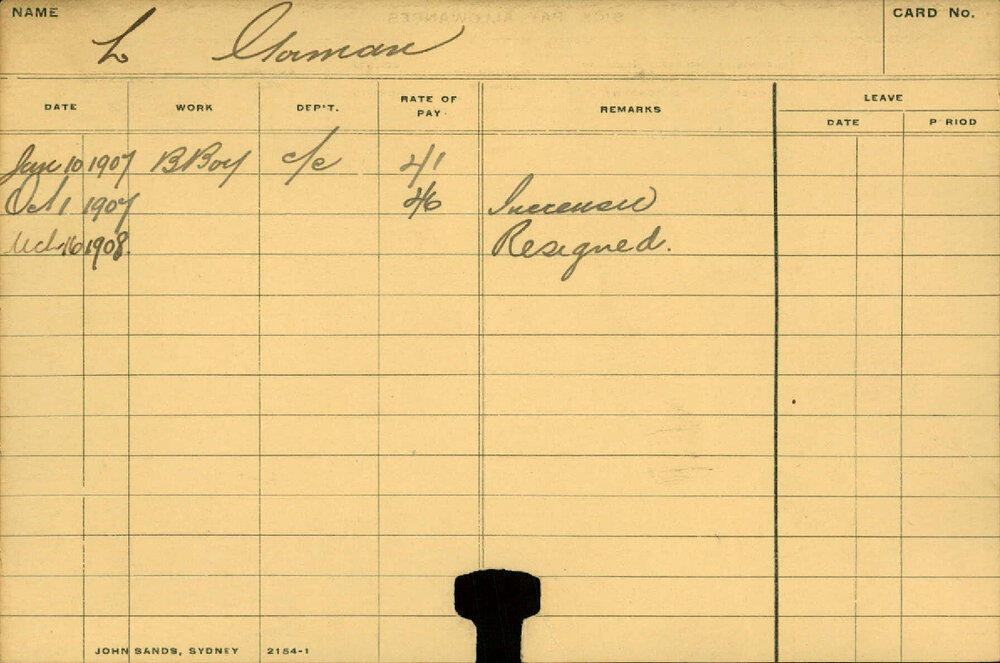 NAME
L Gorman
CARD No.
DATE WORK DEP'T. RATE OF PAY REMARKS LEAVE
DATE PERIOD
10 1907 BBoy c/c 4/1
Oct 1 1907 4/6 Increased
Mch 16 1908. Resigned.
JOHN SANDS, SYDNEY 2154-1